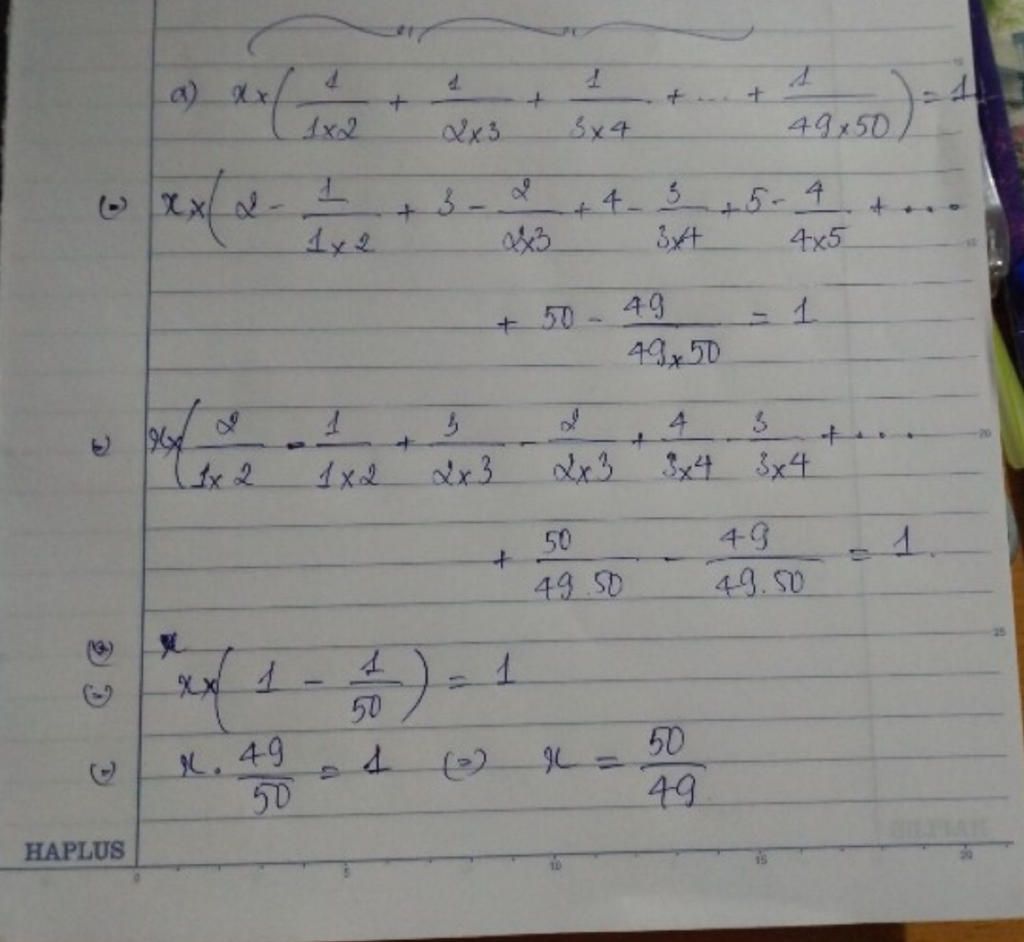 a) x × ( 1/1×2 + 1/2×3 + 1/3×4 + ... + 1/49×50 ) = 1
(=) x × ( 2 - 1/1×2 + 3 - 2/2×3 + 4 - 3/3×4 + 5 - 4/4×5 + ...
+ 50 - 49/49×50 = 1
(=) x × ( 2/1×2 - 1/1×2 + 3/2×3 - 2/2×3 + 4/3×4 - 3/3×4 + ...
+ 50/49.50 - 49/49.50 = 1.
(=) x
(=) x × ( 1 - 1/50 ) = 1
(=) x . 49/50 = 1 (=) x = 50/49
HAPLUS
0 5 10 15 20
10
15
20
25